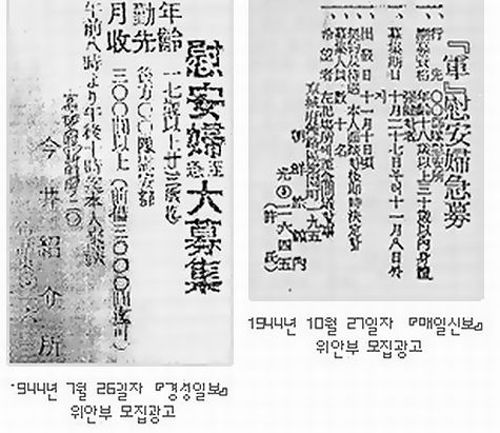 慰安婦至急大募集
年齢 一七歳以上廿三歳迄
勤先 後方〇〇隊慰安部
月収 三〇〇圓以上(前借三〇〇〇圓迄可)
午前八時より午後十時迄本人来談
今井紹介所
1944년 7월 26일자 『경성일보』
위안부 모집광고
『軍』慰安婦急募
一、行先 〇〇部隊慰安所
一、應募資格 年齢十八歳以上三十歳以内身體
一、募集期日 十月二十七日부터十一月八日
一、出發日 十一月十日頃
一、募集人員 數十名
朝鮮旅館内
光③一六四五
(許氏)
1944년 10월 27일자 『매일신보』
위안부 모집광고